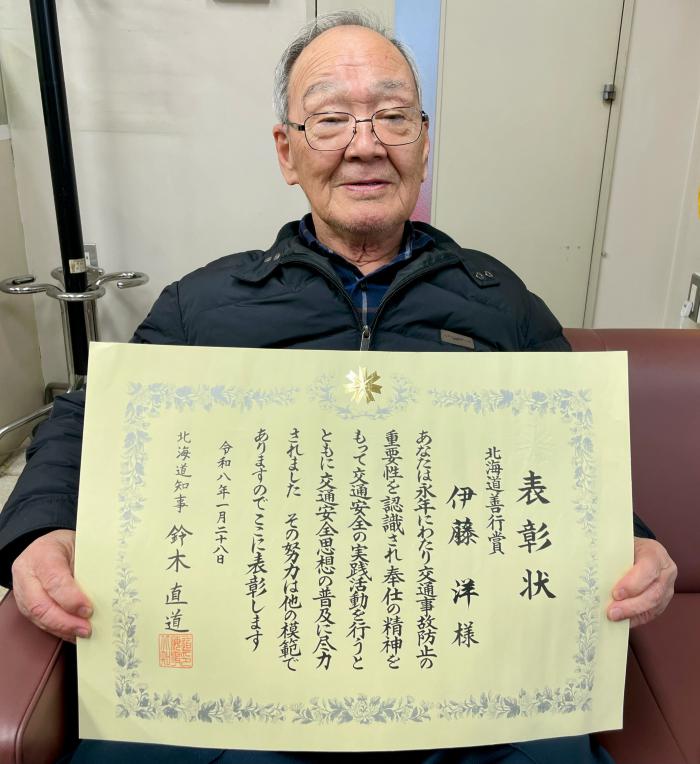 表彰状
北海道善行賞
伊藤 洋 様
あなたは永年にわたり交通事故防止の
重要性を認識され 奉仕の精神を
もって交通安全の実践活動を行うと
ともに交通安全思想の普及に尽力
されました その努力は他の模範で
ありますのでここに表彰します
令和八年一月二十八日
北海道知事 鈴木直道